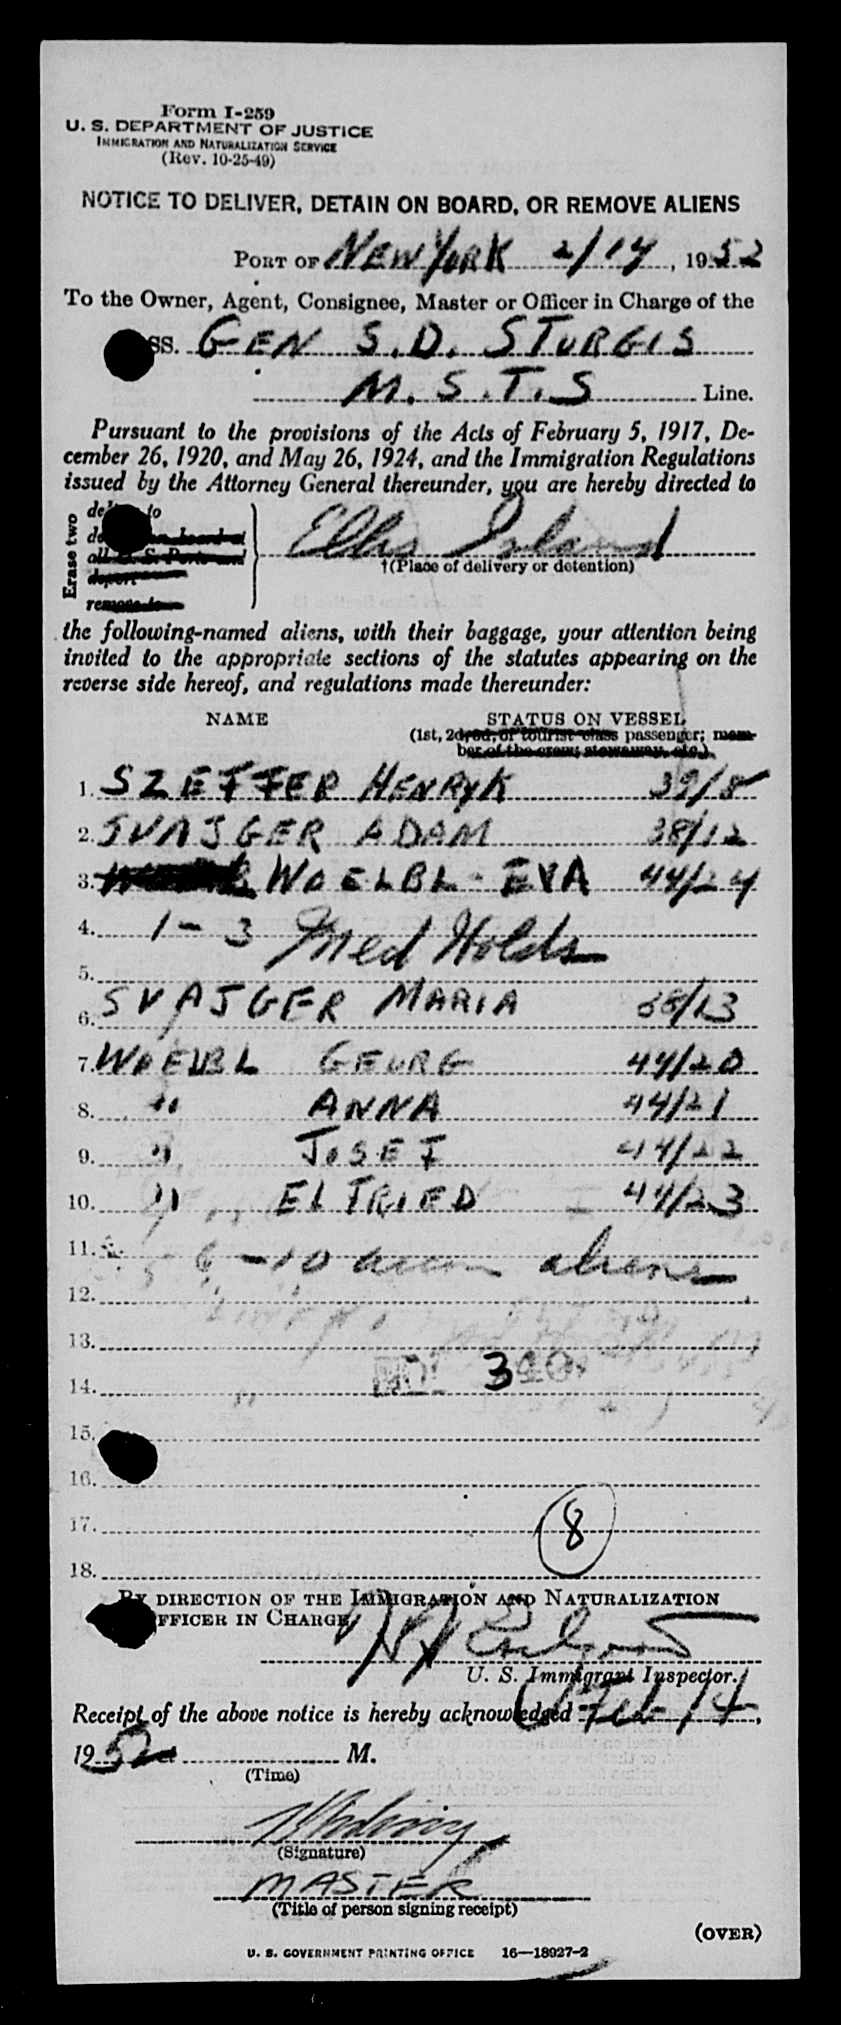 Form I-259
U. S. DEPARTMENT OF JUSTICE
IMMIGRATION AND NATURALIZATION SERVICE
(Rev. 10-25-49)
NOTICE TO DELIVER, DETAIN ON BOARD, OR REMOVE ALIENS
PORT OF NEW YORK 2/14, 1952
To the Owner, Agent, Consignee, Master or Officer in Charge of the
SS. GEN S.D. STURGIS
M.S.T.S Line.
Pursuant to the provisions of the Acts of February 5, 1917, De-
cember 26, 1920, and May 26, 1924, and the Immigration Regulations
issued by the Attorney General thereunder, you are hereby directed to
Erase two
to
on board at
all U. S. Ports and
deport
remove to
Ellis Island
†(Place of delivery or detention)
the following-named aliens, with their baggage, your attention being
invited to the appropriate sections of the statutes appearing on the
reverse side hereof, and regulations made thereunder:
NAME STATUS ON VESSEL
(1st, 2d, 3d, or tourist class passenger; mem-
ber of the crew; stowaway, etc.)
1. SZEFFER HENRYK 39/8
2. SVAJGER ADAM 38/12
3. WOELBL - EVA 44/24
4. 1 - 3 Med Holds
5.
6. SVAJGER MARIA 38/13
7. WOELBL GEORG 44/20
8. " ANNA 44/21
9. " JOSEF 44/22
10. " ELFRIED 44/23
11. 6 - 10 accom aliens
12.
13.
14. 3
15.
16.
17. 8
18.
BY DIRECTION OF THE IMMIGRATION AND NATURALIZATION
OFFICER IN CHARGE
U. S. Immigrant Inspector.
Receipt of the above notice is hereby acknowledged Feb 14,
1952 at M.
(Time)
(Signature)
MASTER
(Title of person signing receipt)
(OVER)
U. S. GOVERNMENT PRINTING OFFICE 16—18927-2